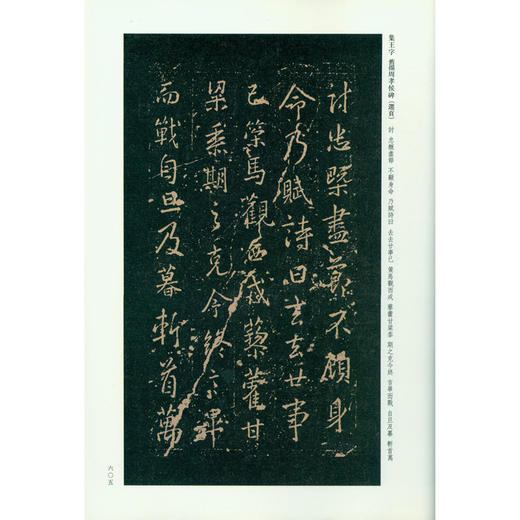 集王字 舊搨周孝侯碑(選頁) 討 忠槩盡節 不顧身命 乃賦詩曰 去去世事已 策馬觀西戎 藜藿甘梁黍 期之克令終 言畢而戰 自旦及暮 斬首萬
討忠槩盡節不顧身
命乃賦詩曰去去世事
已策馬觀西戎藜藿甘
梁黍期之克令終言畢
而戰自旦及暮斬首萬
六〇五